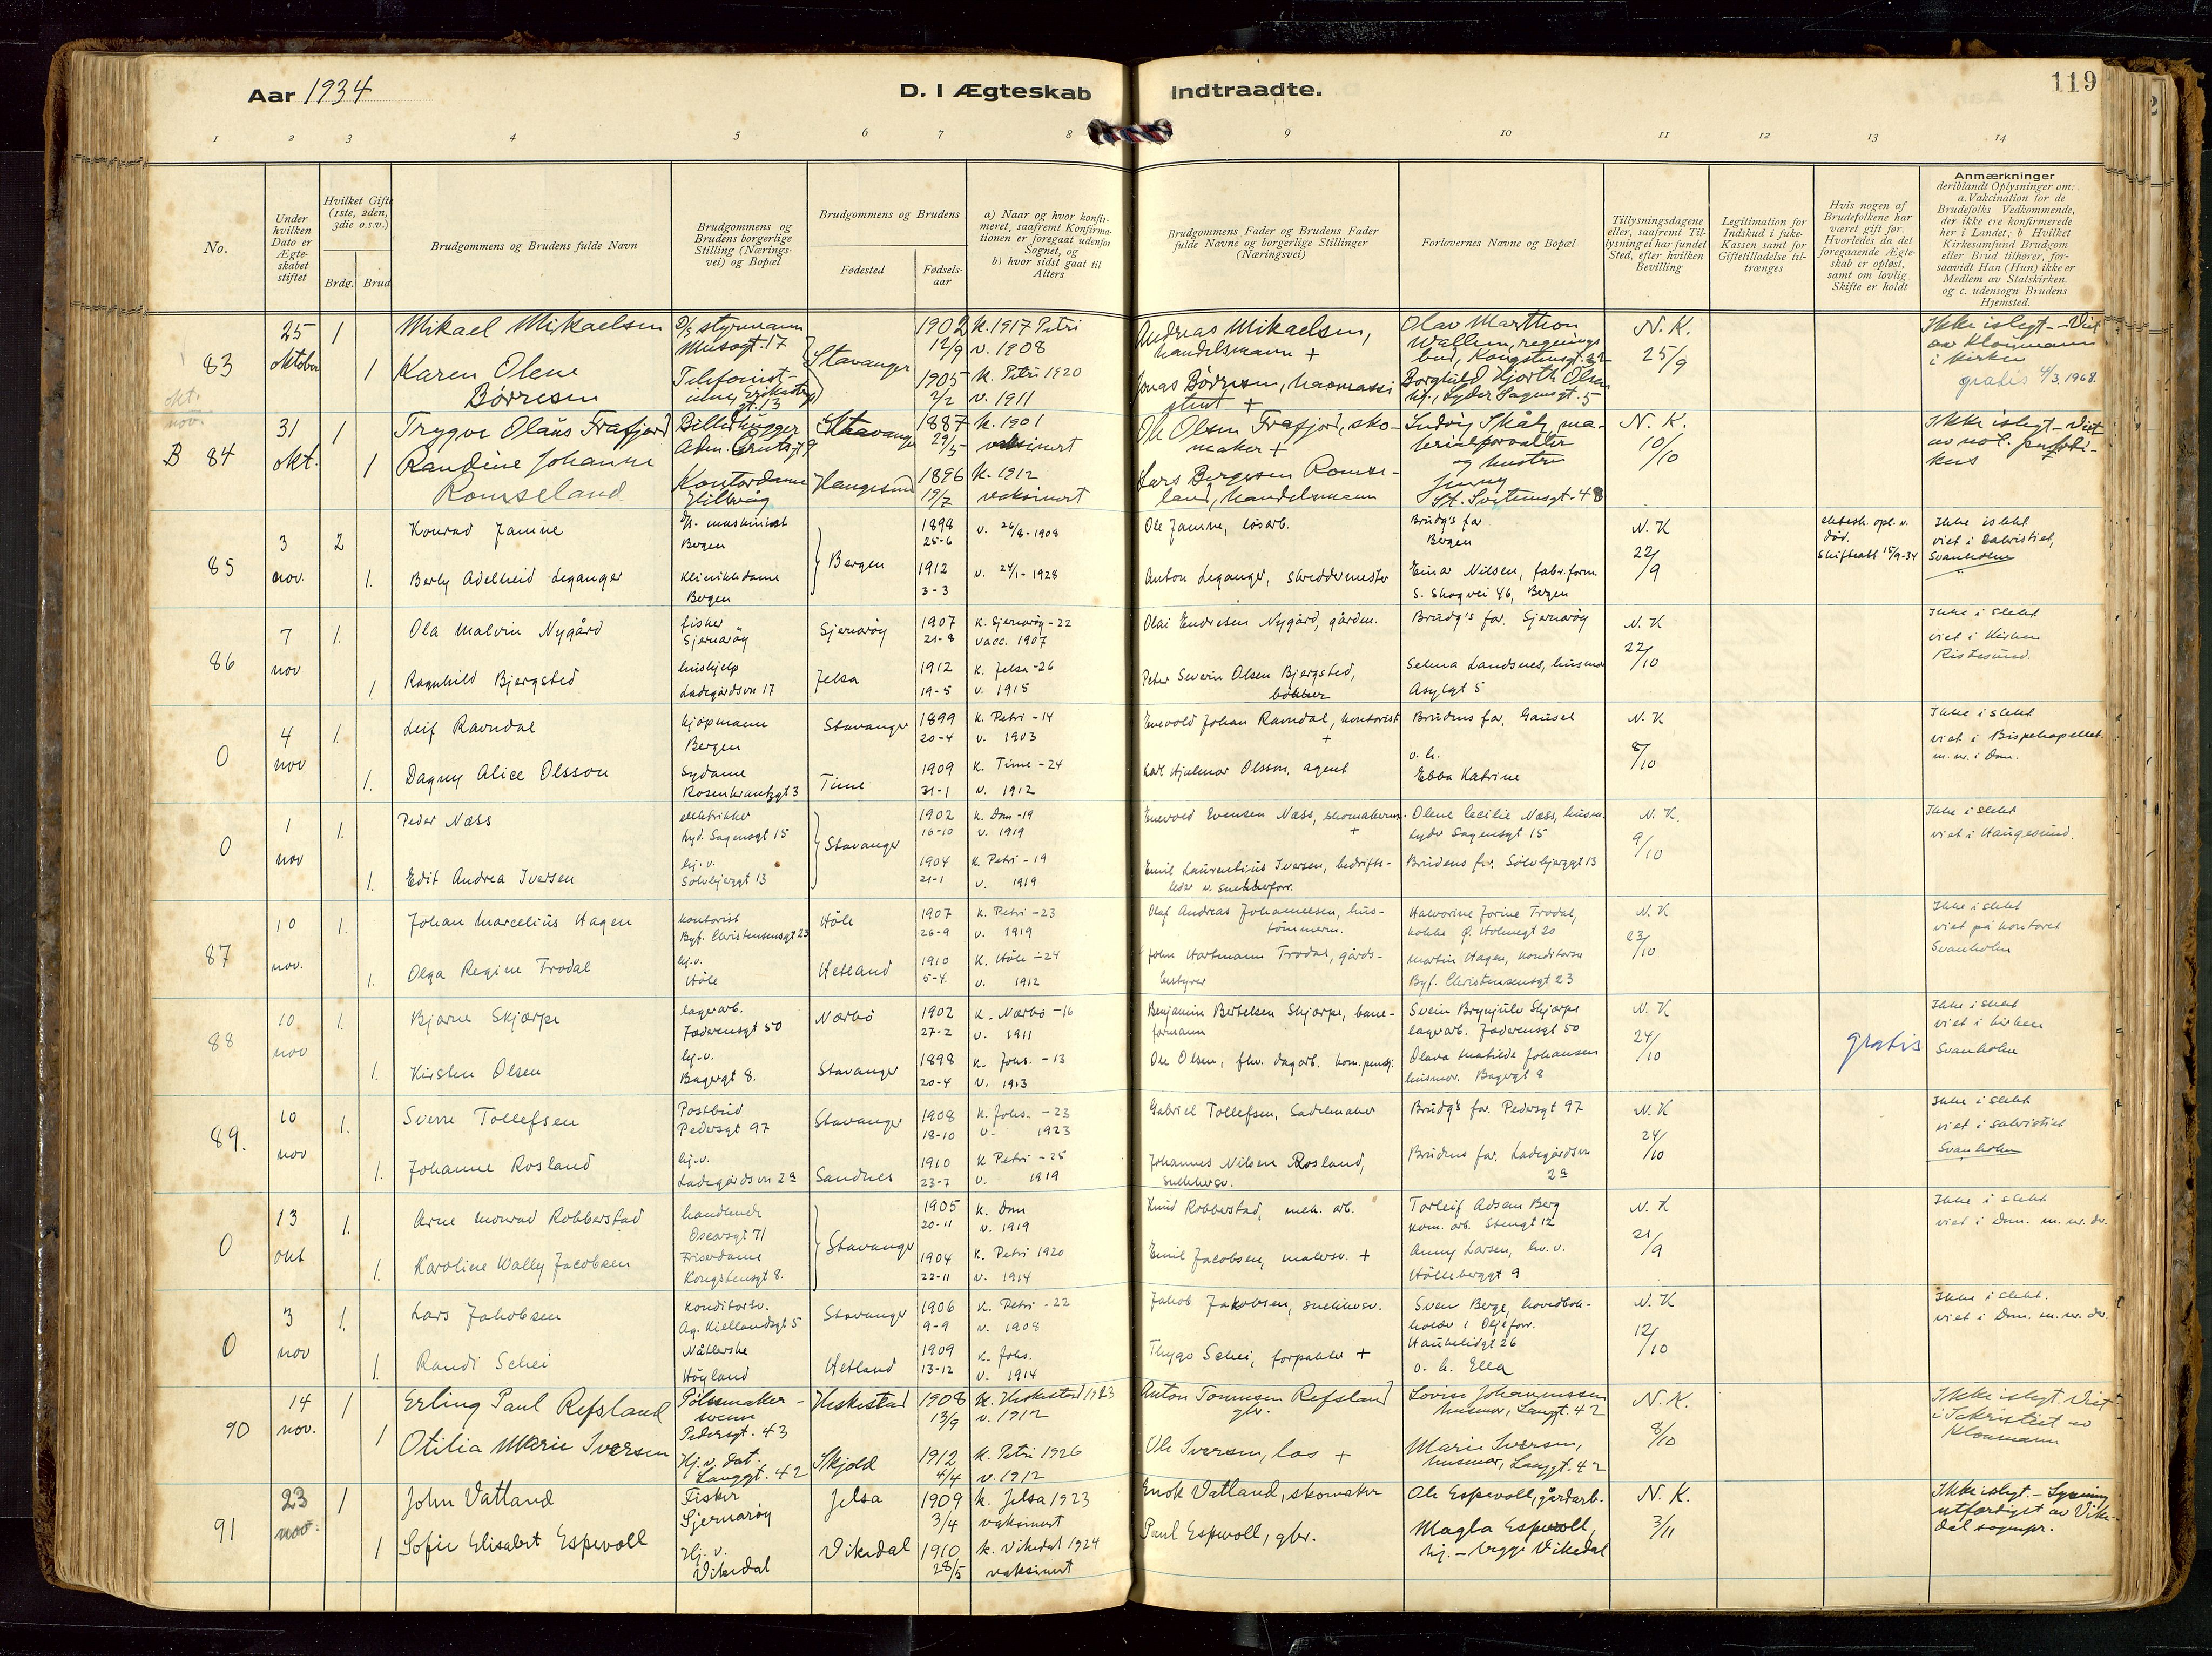 Aar 1934
D. I Ægteskab Indtraadte.
119
1 2 3 4 5 6 7 8 9 10 11 12 13 14
No.
Under hvilken Dato er Ægteskabet stiftet
Hvilket Gifte (1ste, 2den, 3die o.s.v.)
Brdg. Brud
Brudgommens og Brudens fulde Navn
Brudgommens og Brudens borgerlige Stilling (Næringsvei) og Bopæl
Brudgommens og Brudens
Fødested
Fødselsaar
a) Naar og hvor konfirmeret, saafremt Konfirmationen er foregaat udenfor Sognet, og
b) hvor sidst gaat til Alters
Brudgommens Fader og Brudens Fader fulde Navne og borgerlige Stillinger (Næringsvei)
Forlovernes Navne og Bopæl
Tillysningsdagene eller, saafremt Tillysning ei har fundet Sted, efter hvilken Bevilling
Legitimation for Indskud i Enke-Kassen samt for Giftetilladelse tiltrænges
Hvis nogen af Brudefolkene har været gift før. Hvorledes da det foregaaende Ægteskab er opløst, samt om lovlig Skifte er holdt
Anmærkninger
deriblandt Oplysninger om: a. Vakcination for de Brudefolks Vedkommende, der ikke ere konfirmerede her i Landet; b Hvilket Kirkesamfund Brudgom eller Brud tilhører, forsaavidt Han (Hun) ikke er Medlem av Statskirken. og c. udensogn Brudens Hjemsted.
83
25 oktober
1 Mikael Mikaelsen
D/s styrmann
Musegt. 17
Stavanger
1902 12/9
k. 1917 Petri
v. 1908
Andreas Mikaelsen, handelsmann +
Olav Marthon Wallem, regningsbud, Kongstensgt. 32
N. K.
25/9
Ikke i slegt - Viet av Klonmann i kirken
gratis 4/3.1968.
1 Karen Olene Børresen
1905 2/2
k. Petri 1920
v. 1911
Jonas Børresen,
Borghild Hjorth Olsen
hf., Lyder Sagensgt. 5
B 84
31 okt.
1 Trygve Olaus Frafjord
Billedhugger
Stavanger
1887 29/5
k. 1901
vaksinert
Ole Olsen Frafjord, skomaker +
Ludvig Skåly, materialforvalter
og hustru Jenny
St. Svithunsgt. 48
N. K.
10/10
Ikke i slegt - Viet
1 Randine Johanne Romseland
Kontordame
Hillevåg
Haugesund
1896 19/7
k. 1912
vaksinert
Lars Bergesen Romseland, handelsmann
85
3 nov.
2 Konrad Jamne
D/s- maskinist
Bergen
Bergen
1898 25-6
v. 26/8-1908
Ole Jamne, løsarb.
Brudg's far
Bergen
N. K
22/9
ektesk. opl. v. død.
Skifteatt 15/9-34
Ikke i slekt
viet i sakristiet,
Svanholm
1. Berly Adelheid Leganger
Klinikkdame
Bergen
1912 3-3
v. 24/1-1928
Anton Leganger, skreddermester
Einar Nilsen, fabr.form.
S. Skogvei 46, Bergen
86
7 nov
1. Ola Malvin Nygård
fisker
Sjernarøy
Sjernarøy
1907 21-8
k. Sjernarøy-22
vacc. 1907
Olai Endresen Nygård, gårdm.
Brudg's far. Sjernarøy
N. K
22/10
Ikke i slekt
viet i Kirken
1. Ragnhild Bjergsted
hushjelp
Ladegårdsvn 17
Jelsa
1912 19-5
k. Jelsa-26
v. 1915
Peter Severin Olsen Bjergsted, bøkker
Selma Landsnes, husmor
Asylgt 5
0
4 nov
1. Leif Ravndal
kjøpmann
Bergen
Stavanger
1899 20-4
k. Petri -14
v. 1903
Enevold Johan Ravndal, kontorist +
Brudens far, Gausel
N. K
8/10
Ikke i slekt
viet i Bispekapellet.
m. nr. i Dom.
1. Dagny Alice Olsson
Sydame
Rosenkrantzgt 3
Time
1909 31-1
k. Time -24
v. 1912
Karl Hjalmar Olsson, agent
o. h.
Ebba Katrine
0
1 nov
1. Peder Næss
elektrikker
Lyd. Sagensgt 15
Stavanger
1902 16-10
k. Dom -19
v. 1919
Enevold Evensen Næss, skomakerm. +
Olene Cecilie Næss, husm.
Lyder Sagensgt 15
N. K.
9/10
Ikke i slekt
viet i Haugesund.
1. Edit Andrea Iversen
hj.v.
Sølvbjerggt 13
1904 21-1
k. Petri -19
v. 1919
Emil Laurentius Iversen, bedriftsleder v. snekkerforr.
Brudens far, Sølvbjerggt 13
87
10 nov.
1. Johan Marcelius Hagen
kontorist
Byf. Christensensgt 23
Høle
1907 26-9
k. Petri -23
v. 1919
Olaf Andreas Johannesen, hustømmerm.
Halvorine Jorine Trodal,
kokke Ø. Holmegt 20
N. K
23/10
Ikke i slekt
viet på kontoret
Svanholm
1. Olga Regine Trodal
hj.v.
Høle
Hetland
1910 5-4.
k. Høle -24
v. 1912
John Hartmann Trodal, gårdsbestyrer
Martin Hagen, konditorsv
Byf. Christensensgt 23
88
10 nov
1. Bjarne Skjærpe
lagerarb.
Jæderensgt 50
Nærbø
1902 27-2
k. Nærbø -16
v. 1911
Benjamin Bertelsen Skjærpe, baneformann
Svein Brynjulv Skjærpe
lagerarb. Jæderensgt 50
N. K
24/10
gratis
Ikke i slekt
viet i kirken
Svanholm
1. Kirsten Olsen
hj.v.
Bagergt 8.
Stavanger
1898 20-4
k. Johs. -13
v. 1913
Ole Olsen, fhv. dagarb. kom.pensj.
Olava Matilde Johansen
husmor. Bagergt 8
89.
10 nov
1. Sverre Tollefsen
Postbud
Pedersgt 97
Stavanger
1908 18-10
k. Johs. -23
v- 1923
Gabriel Tollefsen, Sadelmaker
Brudg's far. Pedersgt 97
N. K
24/10
Ikke i slekt
viet i sakristiet
Svanholm
1. Johanne Rosland
hj.v.
Ladegårdsvn 2a
Sandnes
1910 23-7
k Petri -25
v. 1919
Johannes Nilsen Rosland, snekkersv.
Brudens far. Ladegårdsvn 2a
0
13 okt
1. Arne Konrad Robberstad
handlende
Oscarsgt 71
Stavanger
1905 20-11
k. Dom
v. 1919
Knud Robberstad, mek. arb.
Torleif Adsen Berg
kom. arb. Stengt 12
N. K
21/9
Ikke i slekt
viet i Dom. m. nr. dr.
1. Karoline Wally Jacobsen
Friserdame
Kongstensgt 8.
1904 22-11
k. Petri 1920
v. 1914
Emil Jacobsen, malersv. +
Anny Larsen, hv. v.
Hålleberggt 9
0
3 nov
1. Lars Jakobsen
Konditorsv.
Ag. Kiellandsgt 5
Stavanger
1906 9-9
k. Petri -22
v. 1908
Jakob Jakobsen, snekkersv.
Sven Berge, hovedbokholder i Oljeforr.
Haukeligt 26
N. K
12/10
Ikke i slekt.
viet i Dom. m. nr. dr.
1. Randi Schei
Nåtlerske
Høyland
Hetland
1909 13-12
k. Johs.
v. 1914
Thygo Schei, forpakter +
o. h. Ella
90
14 nov.
1 Erling Paul Refsland
Pølsemakersvenn
Pedersgt. 43
Heskestad
1908 13/9
k. Heskestad 1923
v. 1912
Anton Tønnesen Refsland gbr.
Lovise Johannessen
husmor, Langgt. 42
N. K.
8/10
Ikke i slegt. Viet i Sakristiet av Klonmann
1 Otilia Marie Iversen
Hj. v. dat.
Langgt. 42
Skjold
1912 4/4
k. Petri 1926
v. 1912
Ole Iversen, los +
Marie Iversen,
husmor, Langgt. 42
91
23 nov.
1 John Vatland
Fisker
Sjernarøy
Jelsa
1909 3/4
k. Jelsa 1923
vaksinert
Enok Vatland, skomaker
Ole Espevoll, gårdarb.
N. K.
3/11
Ikke i slegt. - Lysning utferdiget av Vikedal sognepr.
1 Sofie Elisabet Espevoll
Hj. v.
Vikedal
Vikedal
1910 28/5
k. Vikedal 1924
vaksinert
Paul Espevoll, gbr.
Magla Espevoll,
hj. - begge Vikedal